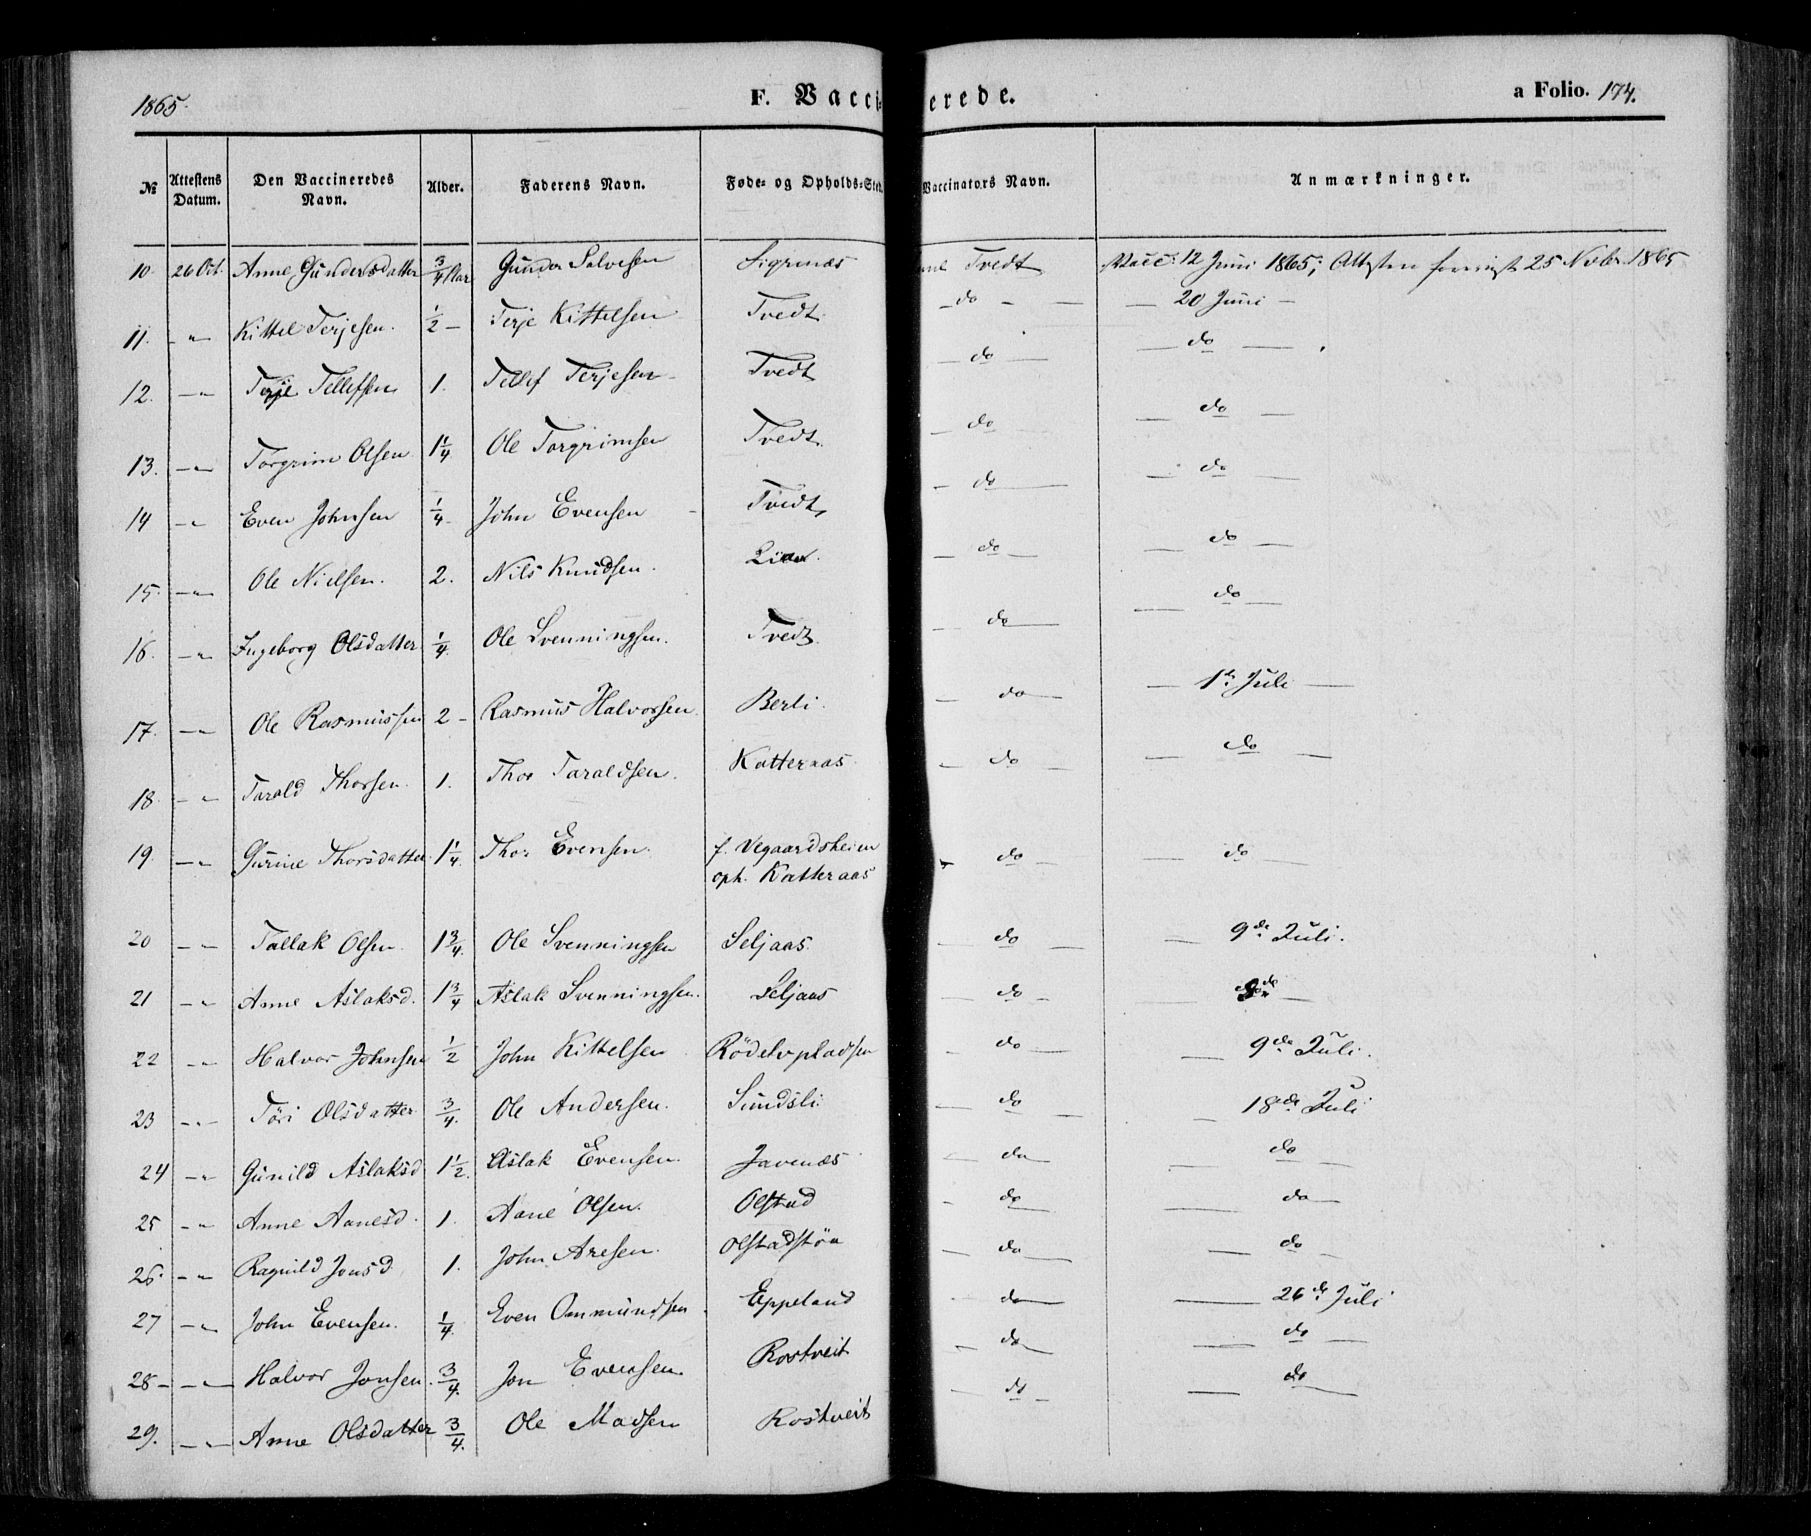 1865. F. Vacci erede. a Folio. 174.
№ Attestens Datum. Den Vaccineredes Navn. Alder. Faderens Navn. Føde- og Opholds-Sted. Vaccinators Navn. Anmærkninger.
10. 26 Oct. Anne Gundersdatter 3/4 Aar Gunder Salvesen Sigrenæs Tvedt Vacc: 12 Juni 1865; Attesten 25 Novbr 1865
11. — " — Kittel Terjesen. 1/2 — Terje Kittelsen Tvedt. — do — — — 20 Juni —
12. — " — Terje Tellefsen 1. Tellef Terjesen Tvedt — do — — do —
13. — " — Torgrim Olsen 1 1/4 Ole Torgrimsen Tvedt. — do — — do —
14 — " — Even Johnsen 1/4 — John Evensen — Tvedt, — do — — do —
15. — " — Ole Nielsen. 2. Nils Knudsen. Lien. — do — — do —
16. — " — Ingeborg Olsdatter 1/4. Ole Svenningsen. Tvedt. — do — — do —
17. — " — Ole Rasmussen 2 — Rasmus Halvorsen. Berli. — do — — 1ste Juli —
18 — " — Tarald Thorsen. 1. Thor Taraldsen. Katteraas. — do — — do —
19. — " — Gurine Thorsdatter. 1 1/4. Thor Evensen. f. Vegaardsheien — do — — do —
oph. Katteraas
20 — " — Tallak Olsen. 1 3/4. Ole Svenningsen Seljaas. — do — — 9de Juli.
21 — " — Anne Aslaksd. 1 3/4 Aslak Svenningsen. Seljaas — do — do —
22 — " — Halvor Johnsen 1/2 John Kittelsen Rödelvpladsen — do — — 9de Juli.
23 — " — Töri Olsdatter 3/4. Ole Andersen. Sundsli — do — — 18de Juli
24 — " — Gunild Aslaksd 1 1/2. Aslak Evensen. Javenæs — do — — do —
25 — " — Anne Aanesd. 1. Aane Olsen. Olstad — do — — do —
26. — " — Ragnild Jonsd. 1. John Aresen. Olstadstöa — do — — do —
27 — " — John Evensen. 1/4. Even Ommundsen Eppeland — do — — 26de Juli
28 — " — Halvor Jonsen. 3/4. Jon Evensen. Rostveit — do — — do —
29. — " — Anne Olsdatter 3/4. Ole Madsen Rostveit — do — — do —